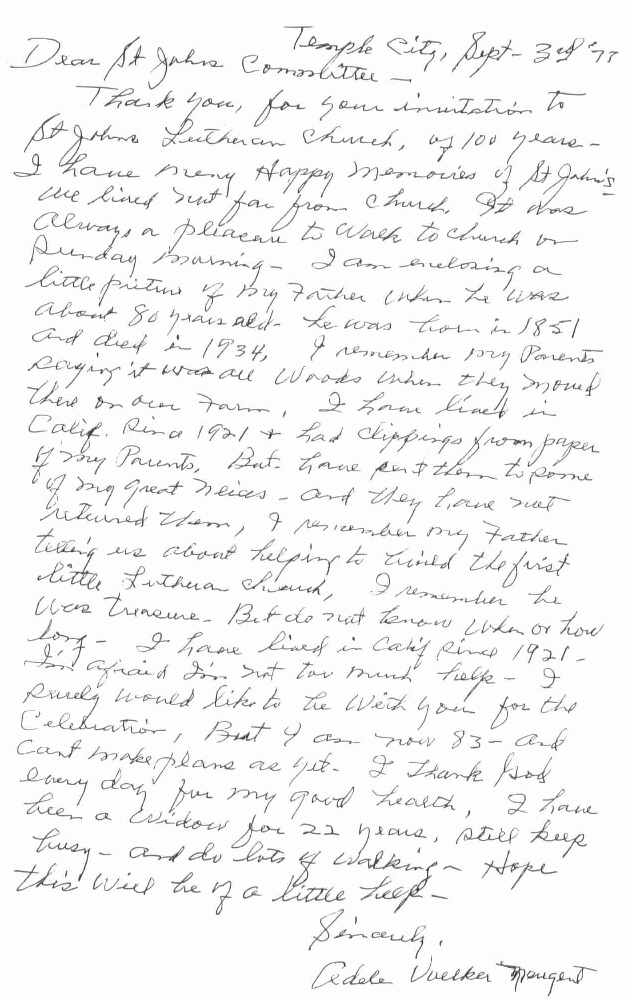 Temple City, Sept - 3rd '77
Dear St Johns Committee -
Thank you, for your invitation to
St Johns Lutheran Church, of 100 years -
I have meny Happy Memories of St John's
We lived not far from Church. It was
always a pleasure to Walk to Church on
Sunday morning - I am enclosing a
little picture of my Father when he was
about 80 years old - he was born in 1851
and died in 1934, I remember my Parents
saying it was all Woods when they moved
there on our Farm, I have lived in
Calif. since 1921 + had clippings from paper
of my Parents, But - have sent them to some
of my great neices - and they have not
returned them, I remember my Father
telling us about helping to build the first
little Lutheran church, I remember he
was treasure - But do not know when or how
long - I have lived in Calif since 1921 -
I'm afraid I'm not too much help - I
surely would like to be with you for the
Celebration, But I am now 83 - and
cant make plans as yet - I thank God
every day for my good health, I have
been a Widow for 22 years, still keep
busy - and do lots of walking - Hope
this will be of a little help -
Sincerely,
Adele Voelker Naugent